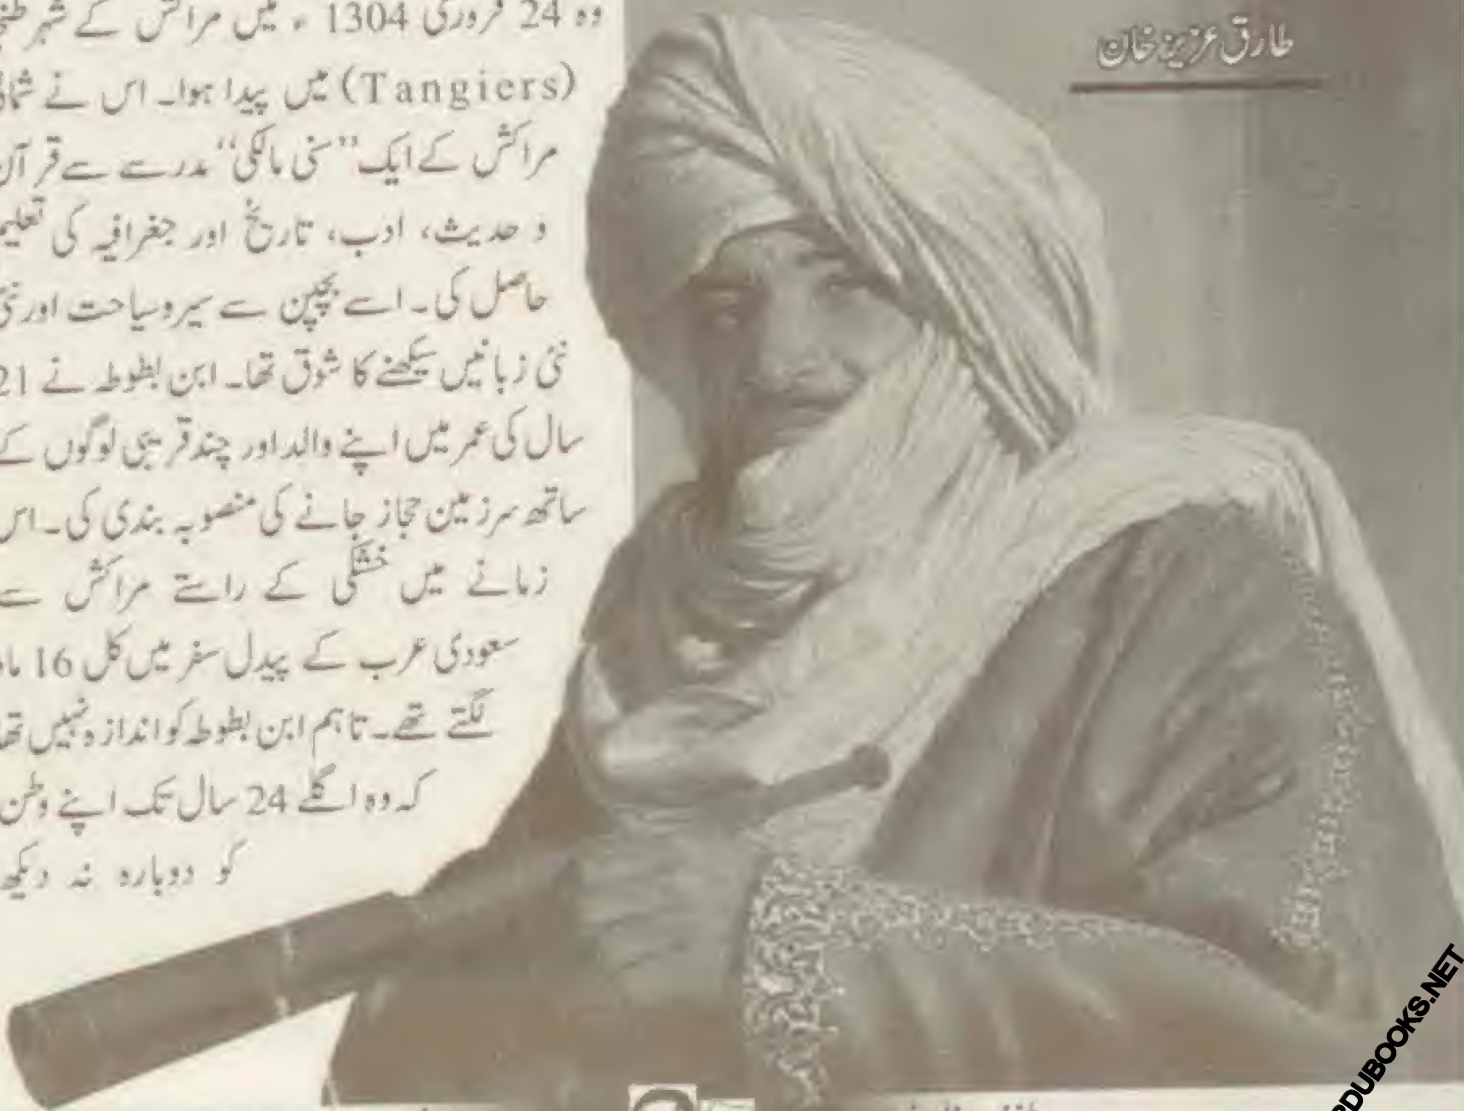 طارق عزیز خان
وہ 24 فروری 1304ء میں مراکش کے شہر
(Tangiers) میں پیدا ہوا۔ اس نے
مراکش کے ایک ”سنی مالکی“ مدرسے سے قرآن
و حدیث، ادب، تاریخ اور جغرافیہ کی تعلیم
حاصل کی۔ اسے بچپن سے سیر و سیاحت اور نئی
نئی زبانیں سیکھنے کا شوق تھا۔ ابن بطوطہ نے 21
سال کی عمر میں اپنے والد اور چند قریبی لوگوں کے
ساتھ سرزمین حجاز جانے کی منصوبہ بندی کی۔ اس
زمانے میں خشکی کے راستے مراکش سے
سعودی عرب کے پیدل سفر میں کل 16 ماہ
لگتے تھے۔ تاہم ابن بطوطہ کو اندازہ نہیں تھا
کہ وہ اگلے 24 سال تک اپنے وطن
کو دوبارہ نہ دیکھ
RDUBOOKS.NET